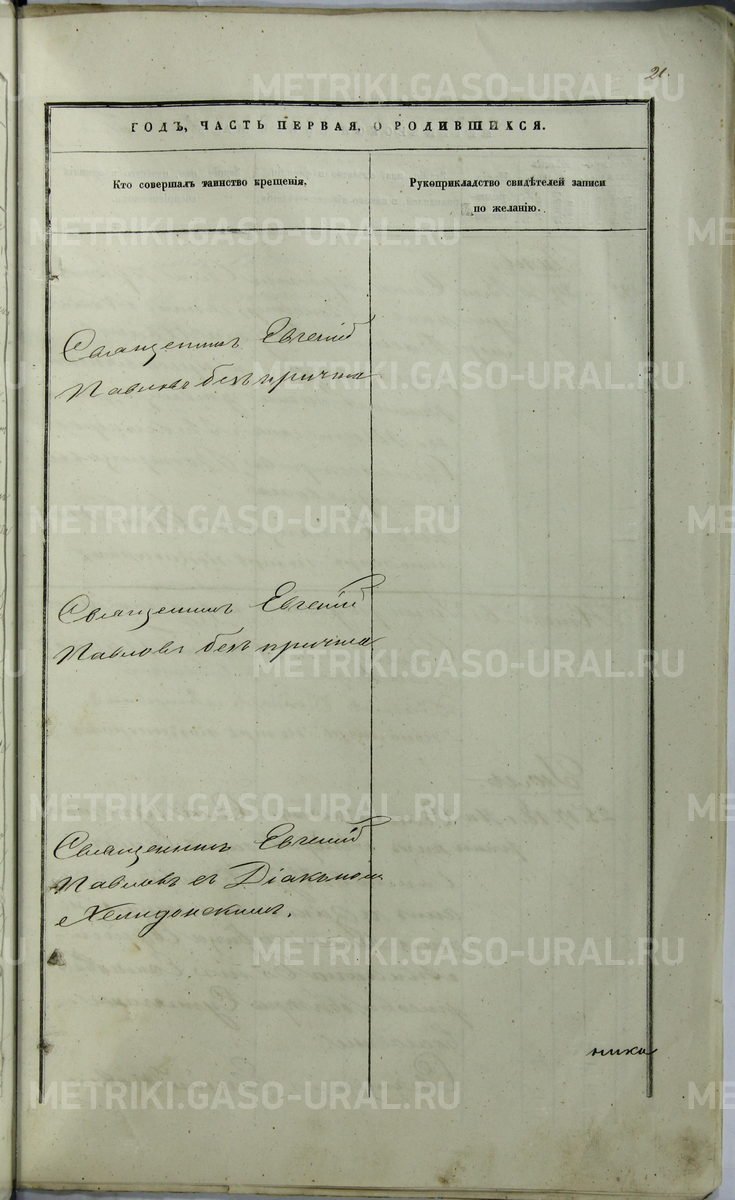 21.
ГОДЪ, ЧАСТЬ ПЕРВАЯ, О РОДИВШИХСЯ.
Кто совершалъ таинство крещенія.
Рукоприкладство свидѣтелей записи
по желанію.
Священникъ Евгеній
Павловъ безъ причта
Священникъ Евгеній
Павловъ безъ причта
Священникъ Евгеній
Павловъ съ Діакономъ
Хелидонскимъ.
ника
METRIKI.GASO-URAL.RU